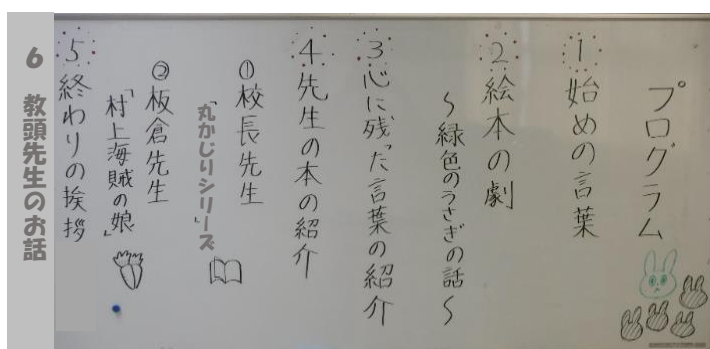 プログラム
1 始めの言葉
2 絵本の劇
～緑色のうさぎの話～
3 心に残った言葉の紹介
4 先生の本の紹介
① 校長先生
「丸かじりシリーズ」
② 板倉先生
「村上海賊の娘」
5 終わりの挨拶
6 教頭先生のお話